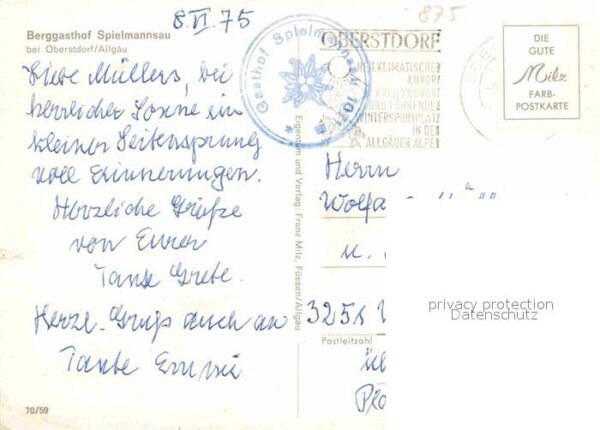 8 VI 75
875
Berggasthof Spielmannsau
bei Oberstdorf/Allgäu
Liebe Müllers, bei
herrlicher Sonne ein
kleiner Seitensprung
voll Erinnerungen.
Herzliche Grüße
von Eurer
Tante Grete.
Herzl. Gruß auch an
Tante Emmi
70/59
Gasthof Spielmannsau
OBERSTDORF
HEILKLIMATISCHER
KURORT
KNEIPPKURORT
UND FÜHRENDER
WINTERSPORTPLATZ
IN DEN
ALLGÄUER ALPEN
DIE
GUTE
Milz
FARB-
POSTKARTE
Eigentum und Verlag: Franz Milz, Füssen/Allgäu
Herrn
Wolfg
u.
325
Postleitzahl
privacy protection
Datenschutz